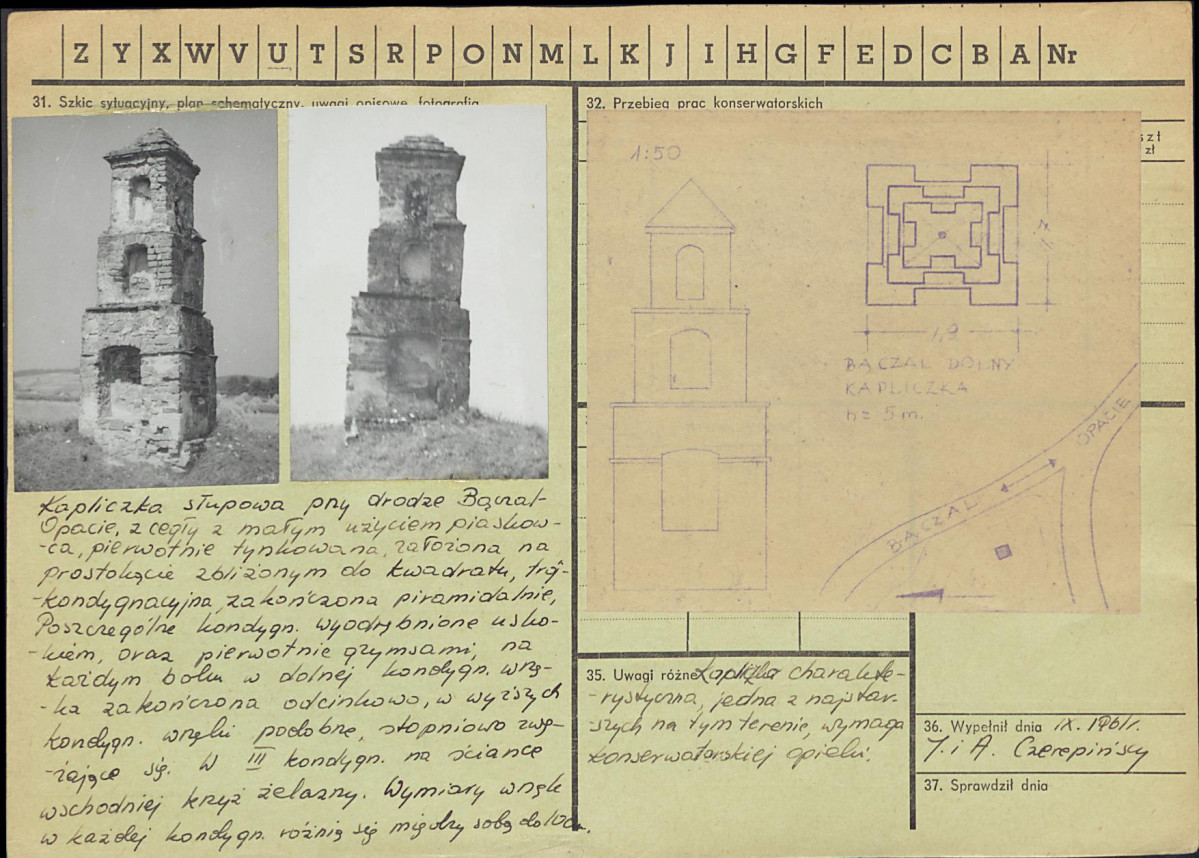 Z Y X W V U T S R P O N M L K J I H G F E D C B A Nr
31. Szkic sytuacyjny, plan schematyczny, uwagi opisowe, fotografia
Kapliczka słupowa przy drodze Bączal-
Opacie, z cegły z małym użyciem piaskow-
-ca, pierwotnie tynkowana, założona na
prostokącie zbliżonym do kwadratu, trój-
-kondygnacyjna, zakończona piramidalnie,
Poszczególne kondygn. wyodrębnione usko-
-kiem, oraz pierwotnie gzymsami, na
każdym boku w dolnej kondygn. wnę-
-ka zakończona odcinkowo, w wyższych
kondygn. wnęki podobne, stopniowo zwę-
-żające się. W III kondygn. na ściance
wschodniej krzyż żelazny. Wymiary wnęk
w każdej kondygn. różnią się między sobą do 10 cm.
32. Przebieg prac konserwatorskich
szt
zł
1:50
1,9
BĄCZAL DOLNY
KAPLICZKA
h = 5 m.
OPACIE
BĄCZAL
35. Uwagi różne Kapliczka charakte-
-rystyczna, jedna z najstar-
-szych na tym terenie, wymaga
konserwatorskiej opieki.
36. Wypełnił dnia IX. 1961r.
J. i A. Czerepińscy
37. Sprawdził dnia